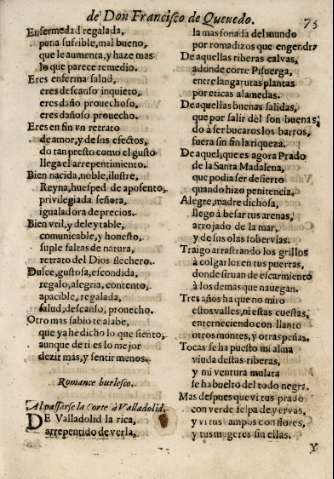 de Don Francisco de Queuedo. 75
Enfermedad regalada,
pena sufrible, mal bueno,
que le aumenta, y haze mas
lo que parece remedio.
Eres enferma salud,
eres descanso inquieto,
eres daño prouechoso,
eres dañoso prouecho.
Eres en fin vn retrato
de amor, y de sus efectos,
do tan presto como el gusto
llega el arrepentimiento.
Bien nacida, noble, ilustre,
Reyna, huesped de aposento,
priuilegiada señora,
igualadora de precios.
Bien vtil, y deleytable,
comunicable, y honesto,
suple faltas de natura,
retrato del Dios flechero.
Dulce, gustosa, escondida,
regalo, alegria, contento,
apacible, regalada,
salud, descanso, prouecho.
Otro mas sabio te alabe,
que ya he dicho lo que siento,
aunque de ti es lo mejor
dezir mas, y sentir menos.
Romance burlesco.
Al passarse la Corte à Valladolid.
DE Valladolid la rica,
arrepentido de verla,
la mas sonada del mundo
por romadizos que engendra
De aquellas riberas caluas,
adonde corre Pisuerga,
entre langaruras plantas
por eticas alamedas.
De aquellas buenas salidas,
que por salir dèl son buenas,
do à ser bucaros los barros,
fuera sin fin la riqueza.
De aquel, que es agora Prado
de la Santa Madalena,
que podia ser desierto
quando hizo penitencia.
Alegre, madre dichosa,
llego à besar tus arenas,
arrojado de la mar,
y de sus olas soberuias.
Traigo arrastrando los grillos
à colgarlos en tus puertas,
donde siruan de escarmiento
à los demas que nauegan.
Tres años ha que no miro
estos valles, ni estas cuestas,
enterneciendo con llanto
otros montes, y otras peñas.
Tocas se ha puesto mi alma
viuda destas riberas,
y mi ventura mulata
se ha buelto del todo negra.
Mas despues que vi tus prados
con verde felpa de yervas,
y vi tus campos con flores,
y tus mugeres sin ellas.
Y